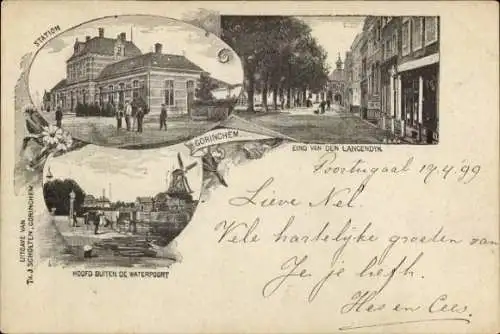 STATION
GORINCHEM.
EIND VAN DEN LANGENDYK.
HOOFD BUITEN DE WATERPOORT
UITGAVE VAN
TH. J. SCHOLTEN, GORINCHEM.
Poortugaal 19.4.'99
Lieve Nel.
Vele hartelijke groeten van
Je je hefh.
en Cees.